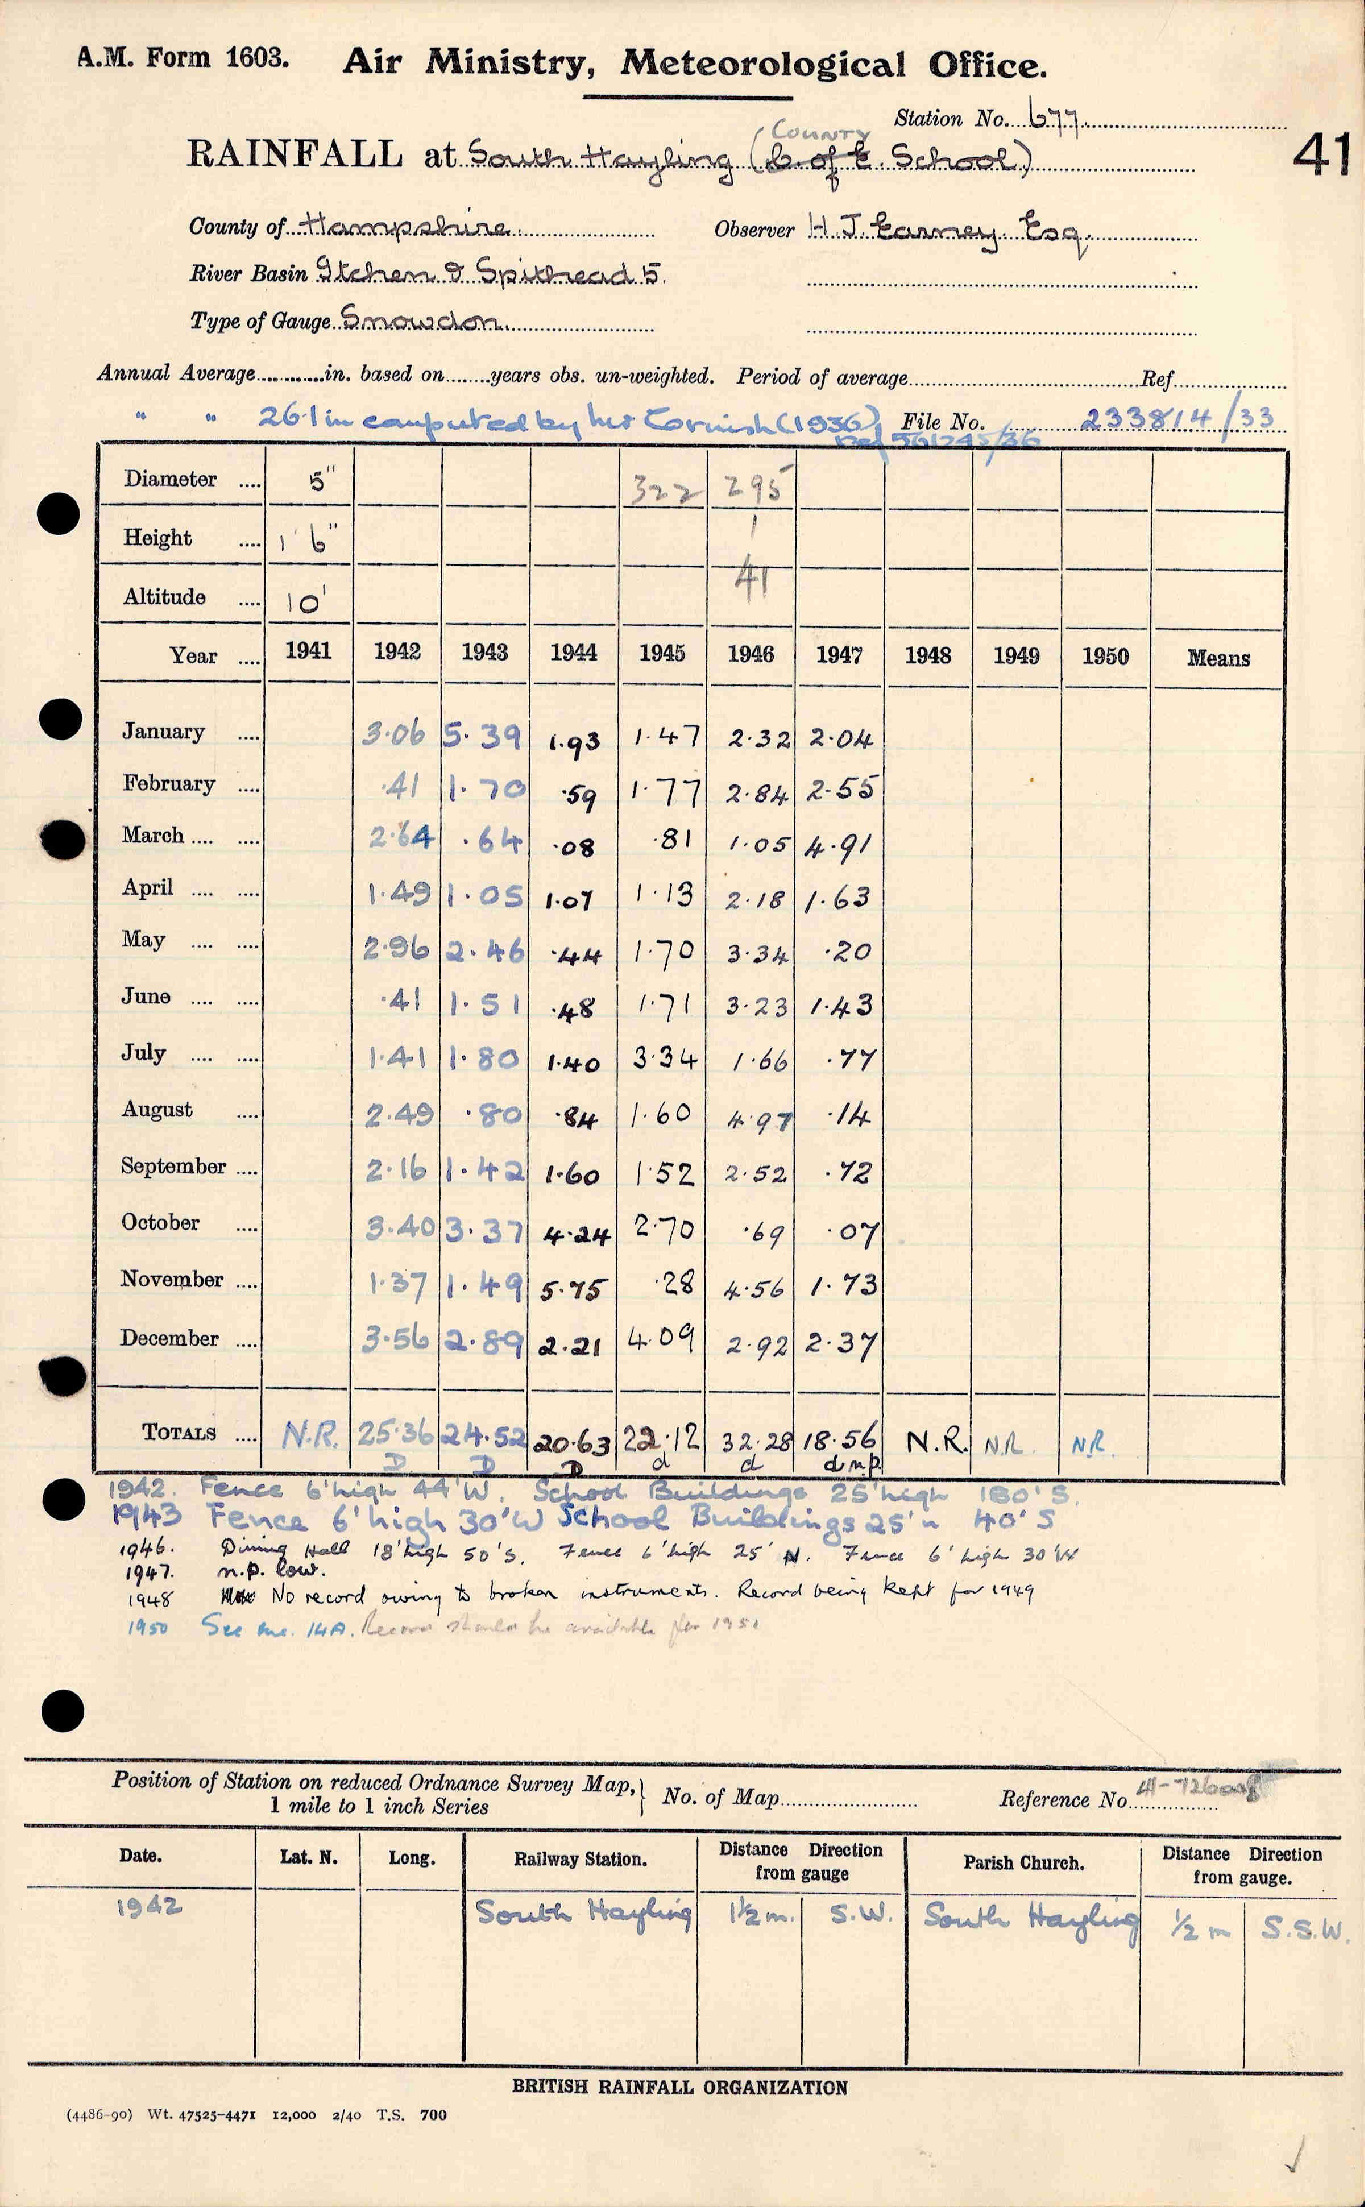 A.M. Form 1603. Air Ministry, Meteorological Office.
Station No. 677
41
County
RAINFALL at South Hayling (C. of E. School)
County of Hampshire Observer H. J. Earney Esq.
River Basin Itchen & Spithead 5.
Type of Gauge Snowdon
Annual Average............in. based on........years obs. un-weighted. Period of average Ref
" " 26.1 in computed by Mr Cornish (1936) File No. 233814/33
Ref 561245/36
Diameter .... 5" 322 295
Height .... 1' 6" 1
Altitude .... 10' 41
Year .... 1941 1942 1943 1944 1945 1946 1947 1948 1949 1950 Means
January .... 3.06 5.39 1.93 1.47 2.32 2.04
February .... .41 1.70 .59 1.77 2.84 2.55
March .... .... 2.64 .64 .08 .81 1.05 4.91
April .... .... 1.49 1.05 1.07 1.13 2.18 1.63
May .... .... 2.96 2.46 .44 1.70 3.34 .20
June .... .... .41 1.51 .48 1.71 3.23 1.43
July .... .... 1.41 1.80 1.40 3.34 1.66 .77
August .... 2.49 .80 .84 1.60 4.97 .14
September .... 2.16 1.42 1.60 1.52 2.52 .72
October .... 3.40 3.37 4.24 2.70 .69 .07
November .... 1.37 1.49 5.75 .28 4.56 1.73
December .... 3.56 2.89 2.21 4.09 2.92 2.37
TOTALS .... N.R. 25.36 24.52 20.63 22.12 32.28 18.56 N.R. N.R. N.R.
D D D d d d n.p.
1942. Fence 6' high 44' W. School Buildings 25' high 180' S.
1943 Fence 6' high 30' W School Buildings 25' h 40' S
1946. Dining Hall 18' high 50' S. Fence 6' high 25' N. Fence 6' high 30' W
1947. n.p. low.
1948 No record owing to broken instruments. Record being kept for 1949
1950 See enc. 14A. Record should be available for 1951
Position of Station on reduced Ordnance Survey Map, 1 mile to 1 inch Series } No. of Map Reference No. 41-726008
Date. Lat. N. Long. Railway Station. Distance Direction from gauge Parish Church. Distance Direction from gauge.
1942 South Hayling 1½ m. S.W. South Hayling ½ m S.S.W.
BRITISH RAINFALL ORGANIZATION
(4486-90) Wt. 47525-4471 12,000 2/40 T.S. 700